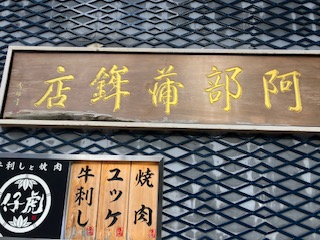 阿部蒲鉾店
牛刺しと焼肉
仔虎
焼肉
ユッケ
牛刺し